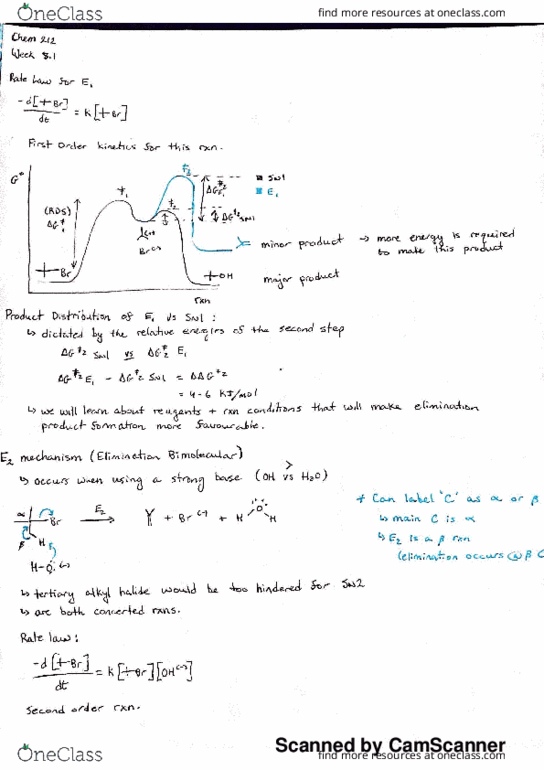 OneClass
find more resources at oneclass.com
Chem 212
Week 8.1
Rate Law for E1
-d[+Br]/dt = k[+Br]
First Order kinetics for this rxn.
G°
(RDS)
ΔG‡1
‡1
‡2
‡2
ΔG‡2
ΔG‡2 SN1
■ SN1
■ E1
Br(-)
minor product → more energy is required to make this product
Br
OH
major product
rxn
Product Distribution of E1 vs SN1:
↳ dictated by the relative energies of the second step
ΔG‡2 SN1 vs ΔG‡2 E1
ΔG‡2 E1 - ΔG‡2 SN1 = ΔΔG‡2
= 4-6 KJ/mol
↳ we will learn about reagents + rxn conditions that will make elimination
product formation more favourable.
E2 mechanism (Elimination Bimolecular)
↳ occurs when using a strong base (OH vs H2O)
>
* Can label 'C' as α or β
↳ main C is α
↳ E2 is a β rxn
(elimination occurs @ β C
α
Br
β
H
H-O:(-)
E2
+ Br(-) + H O H
↳ tertiary alkyl halide would be too hindered for SN2
↳ are both concerted rxns.
Rate law:
-d[+Br]/dt = k[+Br][OH(-)]
Second order rxn.
Scanned by CamScanner
OneClass
find more resources at oneclass.com